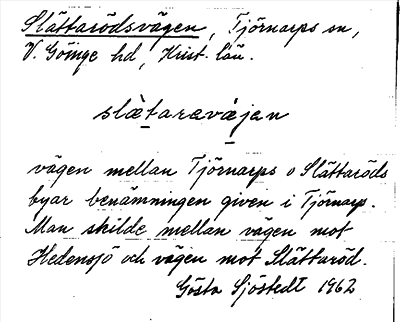 Slättarödsvägen, Tjörnarps sn,
V. Göinge hd, Krist. län.
slätaraväjan
vägen mellan Tjörnarps o Slättaröds
byar benämningen given i Tjörnarp.
Man skilde mellan vägen mot
Hedensjö och vägen mot Slättaröd.
Gösta Sjöstedt 1962